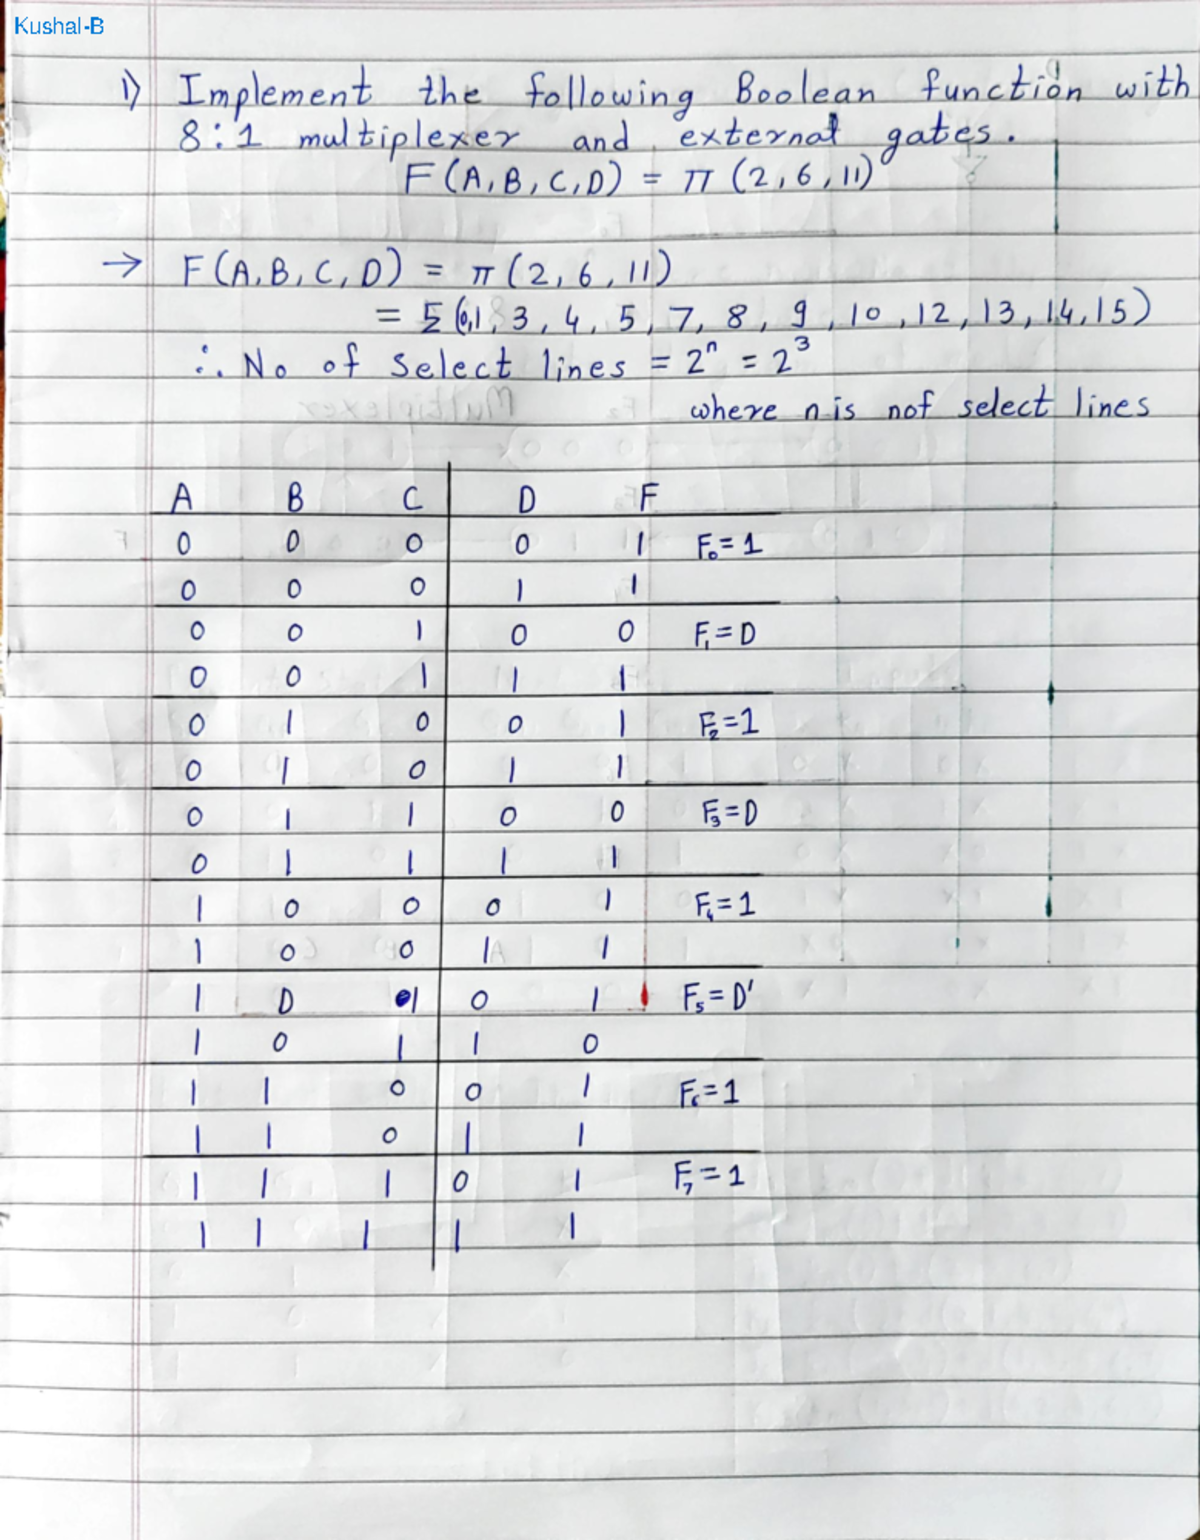 Kushal-B
1) Implement the following Boolean function with
8:1 multiplexer and external gates.
F(A,B,C,D) = π (2,6,11)
→ F(A,B,C,D) = π(2,6,11)
= Σ(0,1,3,4,5,7,8,9,10,12,13,14,15)
∴ No of select lines = 2ⁿ = 2³
where n is nof select lines
A B C D F
0 0 0 0 1 F₀=1
0 0 0 1 1
0 0 1 0 0 F₁=D
0 0 1 1 1
0 1 0 0 1 F₂=1
0 1 0 1 1
0 1 1 0 0 F₃=D
0 1 1 1 1
1 0 0 0 1 F₄=1
1 0 0 1 1
1 0 1 0 1 F₅=D'
1 0 1 1 0
1 1 0 0 1 F₆=1
1 1 0 1 1
1 1 1 0 1 F₇=1
1 1 1 1 1